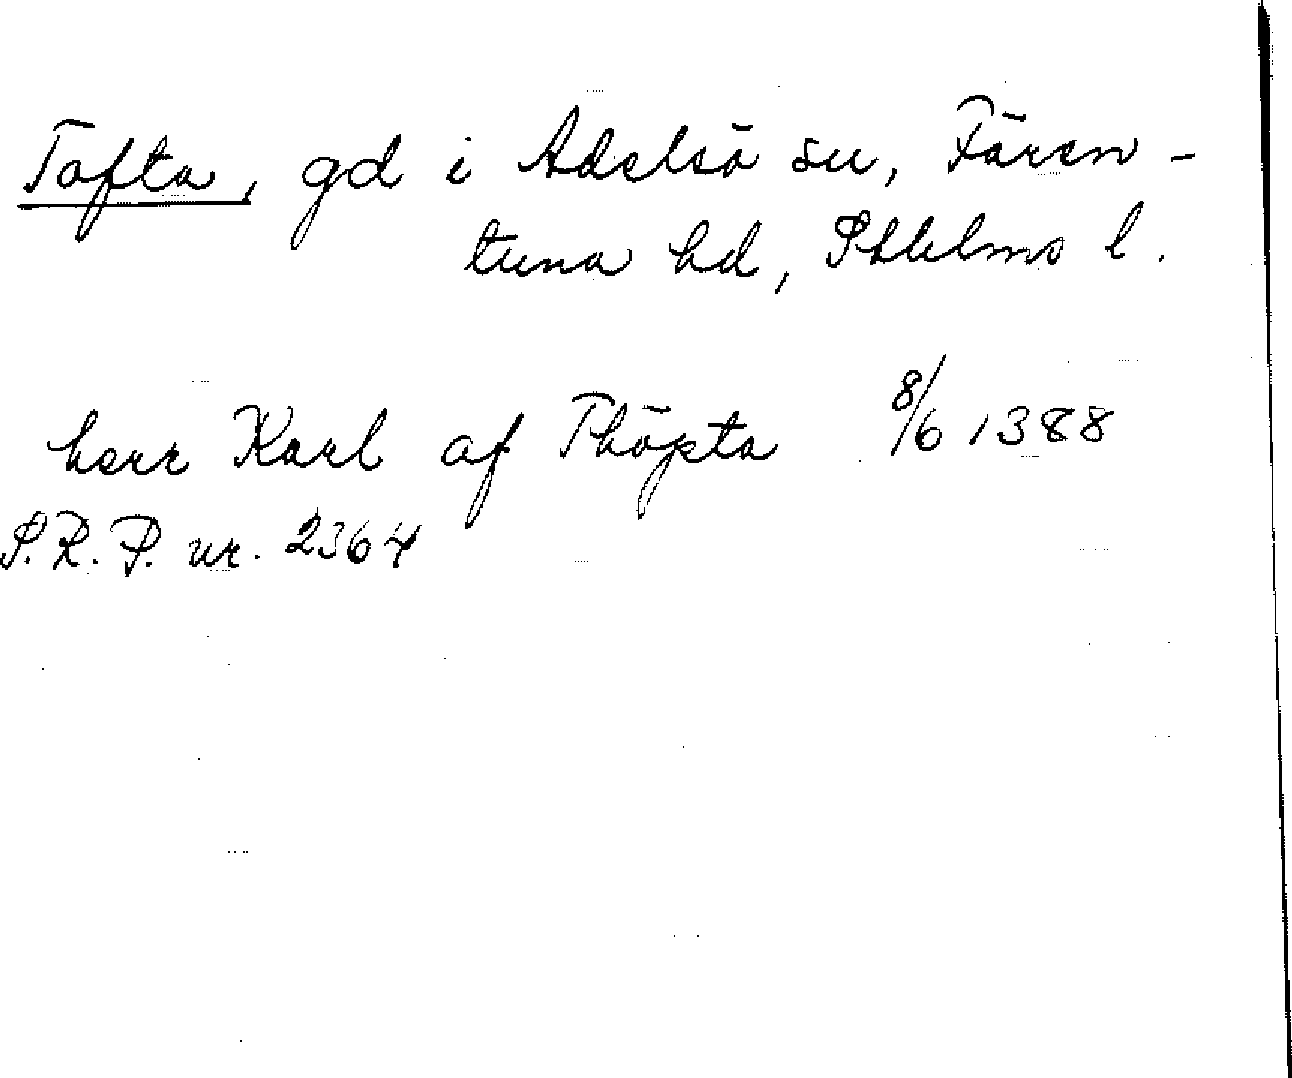 Tofta, gd i Adelsö sn, Fären-
tuna hd, Sthlms l.
herr Karl af Thöpta 8/6 1388
S.R.P. nr. 2364